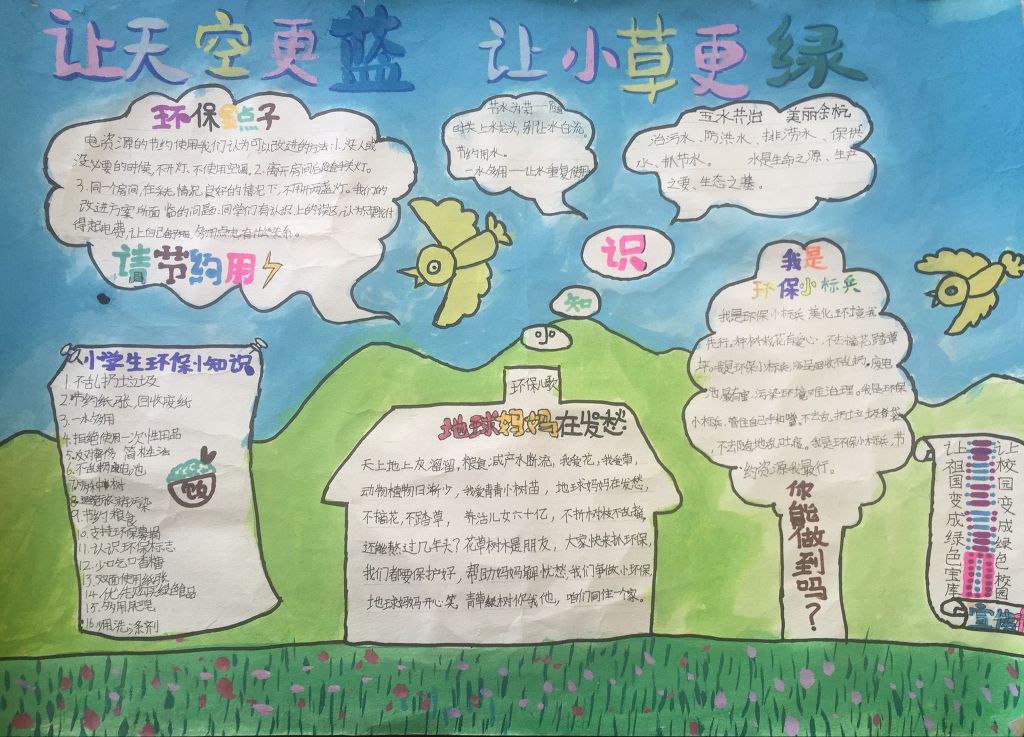 让天空更蓝 让小草更绿
环保金点子
电资源的节约使用我们认为可以改进的方法:1.没人或
没必要的时候,不开灯,不使用空调,2.离开房间后随手关灯。
3.同一个房间,在采光情况良好的情况下,不用开两盏灯。我们的
改进方案所面临的问题:同学们有认识上的误区,认为
得起电费,让自己舒服,多用点也有什么关系。
请节约用
节水为荣——随
时关上水龙头,别让水白流。
节约用水。
一水多用——让水重复使用
五水共治 美丽余杭
治污水、防洪水、排涝水、保供
水、抓节水。 水是生命之源、生产
之要、生态之基。
识
知
小学生环保小知识
1.不乱扔垃圾
2.节约纸张,回收废纸
3.一水多用
4.拒绝使用一次性用品
5.反对奢侈 简朴生活
6.不乱扔电池
9.节约粮食
10.支持环保募捐
11.认识环保标志
12.少吃口香糖
13.双面使用纸张
14.优先购买绿色产品
16.洗涤剂
饭
环保儿歌
地球妈妈在发愁
天上地上灰溜溜,粮食减产水断流,我爱花,我爱草,
动物植物日渐少,我爱青青小树苗,地球妈妈在发愁,
不摘花,不踏草, 养活儿女六十亿, 不折树枝不乱踏,
还能熬过几年头?花草树木是朋友, 大家快来抓环保,
我们都要保护好, 帮助妈妈解忧愁,我们争做小环保,
地球妈妈开心笑, 青草绿树你我他, 咱们同住一个家。
我是
环保小标兵
我是环保小标兵,美化环境我
先行。种树栽花有爱心,不去摘花踏草
坪。我是环保小标兵,废电
池最有毒,污染环境难治理。我是环保
小标兵,管住自己手和嘴。不去乱扔垃圾袋,
不去随地乱吐痰。我是环保小标兵,节
约资源我最行。
你能做到吗?
让祖国变成绿色宝库
让校园变成绿色校园